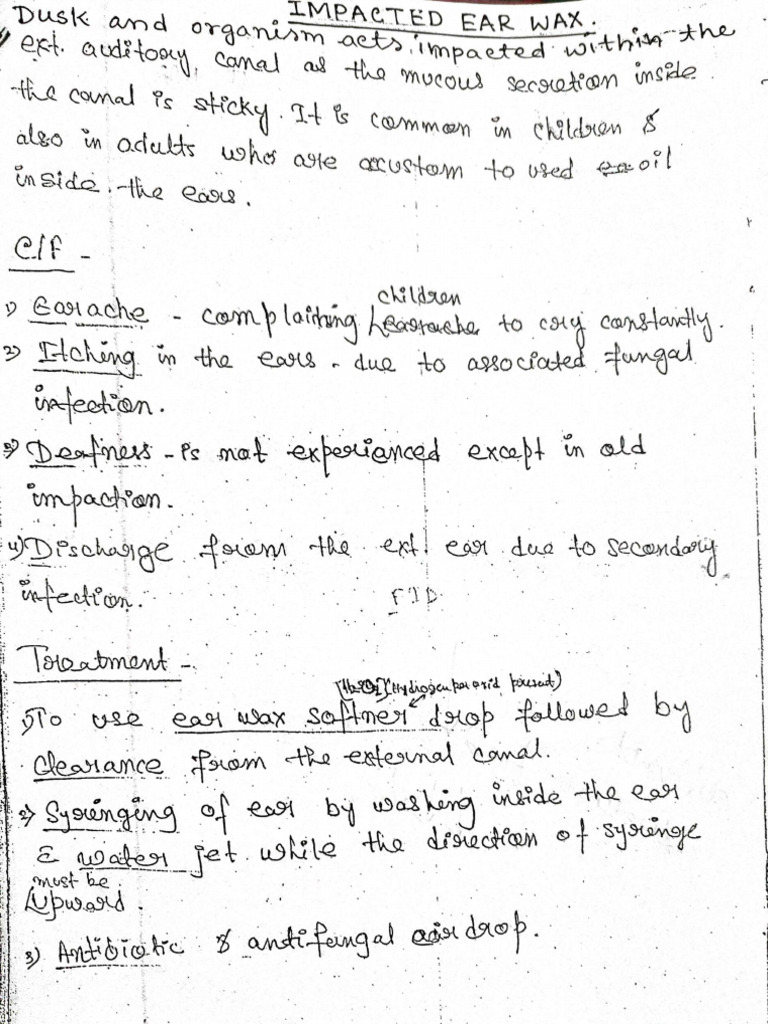 IMPACTED EAR WAX.
Dusk and organism acts, impacted within the
ext. auditory canal as the mucous secretion inside
the canal is sticky. It is common in children &
also in adults whos are accustom to used oil
inside the ears.
C/F -
1) Earache - complaining children to cry constantly.
2) Itching in the ears - due to associated fungal
infection.
3) Deafness - is not experianced except in old
impaction.
4) Discharge from the ext. ear due to secondary
infection.
Treatment -
[H2O2] (Hydrogen peroxid present)
1) To use ear wax softner drop followed by
clearance from the external canal.
2) Syringing of ear by washing inside the ear
c water jet while the direction of syringe
must be
Upward.
3) Antibiotic & antifungal drop.